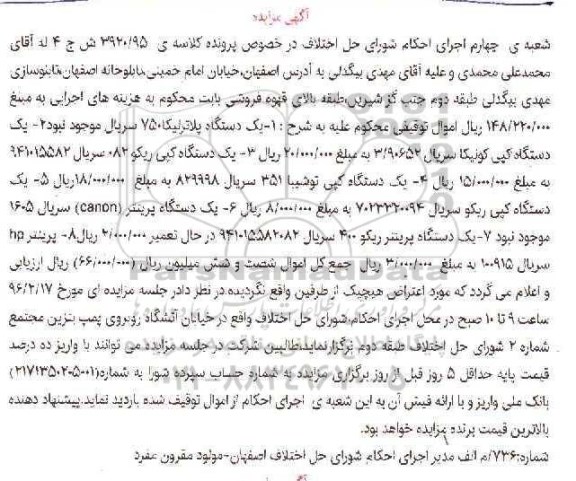 آگهی مزایده
شعبه ی چهارم اجرای احکام شورای حل اختلاف در خصوص پرونده کلاسه ی ۳۹۲۰/۹۵ ش ح ۴ له آقای
محمدعلی محمدی و علیه آقای مهدی بیگدلی به آدرس اصفهان،خیابان امام خمینی،تابلوخانه اصفهان،تابلوسازی
مهدی بیگدلی طبقه دوم جنب گز شیرین،طبقه بالای قهوه فروشی بابت محکوم به هزینه های اجرایی به مبلغ
۱۴۸/۲۲۰/۰۰۰ ریال اموال توقیفی محکوم علیه به شرح :۱-یک دستگاه پلاتر،نیکا۷۵۰ سریال موجود نبود۲- یک
دستگاه کپی کونیکا سریال ۳/۹۰۶۵۲ به مبلغ ۲۰/۰۰۰/۰۰۰ ریال ۳- یک دستگاه کپی ریکو ۰۸۲ سریال ۹۴۱۰۱۵۵۸۲
به مبلغ ۱۵/۰۰۰/۰۰۰ ریال ۴- یک دستگاه کپی توشیبا ۳۵۱ سریال ۸۲۹۹۹۸ به مبلغ ۱۸/۰۰۰/۰۰۰ریال ۵- یک
دستگاه کپی ریکو سریال ۷۰۲۳۳۲۰۰۹۴ به مبلغ ۸/۰۰۰/۰۰۰ ریال ۶- یک دستگاه پرینتر (canon) سریال ۱۶۰۵
موجود نبود ۷-یک دستگاه پرینتر ریکو ۴۰۰ سریال ۹۴۱۰۱۵۵۸۲۰۸۲ در حال تعمیر ۲/۰۰۰/۰۰۰ ریال۸- پرینتر hp
سریال ۱۰۰۹۱۵ به مبلغ ۳/۰۰۰/۰۰۰ ریال جمع کل اموال شصت و شش میلیون ریال (۶۶/۰۰۰/۰۰۰) ریال ارزیابی
و اعلام می گردد که مورد اعتراض هیچیک از طرفین واقع نگردیده در نظر دادر جلسه مزایده ای مورخ ۹۶/۲/۱۷
ساعت ۹ تا ۱۰ صبح در محل اجرای احکام شورای حل اختلاف واقع در خیابان آتشگاه روبروی پمپ بنزین مجتمع
شماره ۲ شورای حل اختلاف طبقه دوم برگزار نماید.طالبین شرکت در جلسه مزایده می توانند با واریز ده درصد
قیمت پایه حداقل ۵ روز قبل از روز برگزاری مزایده به شماره حساب سپرده شورا به شماره(۲۱۷۱۳۵۰۲۰۵۰۰۱)
بانک ملی واریز و با ارائه فیش آن به این شعبه ی اجرای احکام از اموال توقیف شده بازدید نماید.پیشنهاد دهنده
بالاترین قیمت برنده مزایده خواهد بود.
شماره:۷۳۶/م الف مدیر اجرای احکام شورای حل اختلاف اصفهان-مولود مقرون عفرد